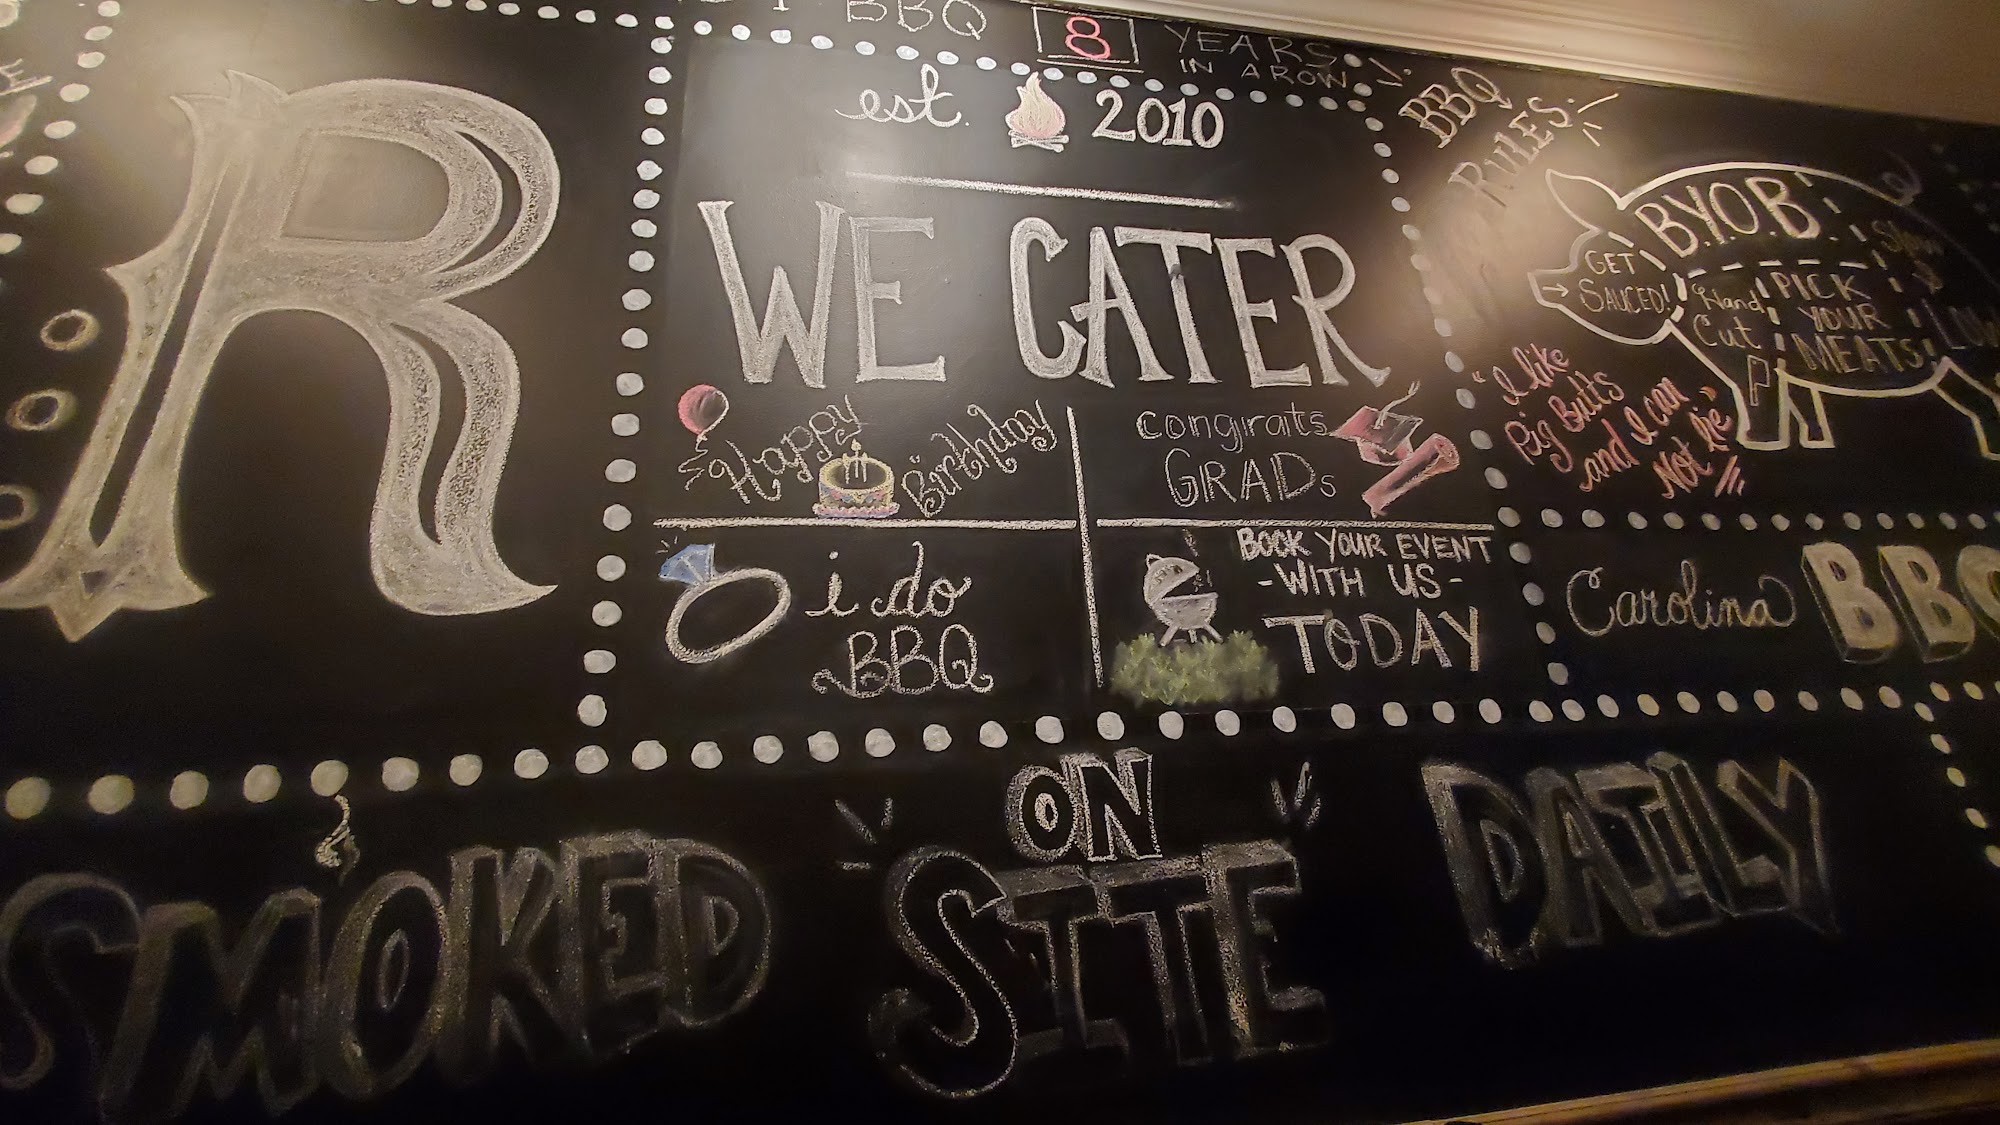 BBQ 8 YEARS
IN A ROW
R
est. 2010
WE CATER
Happy Birthday
congrats
GRADs
i do
BBQ
BOOK YOUR EVENT
-WITH US-
TODAY
BBQ
RULES:
B.Y.O.B.
GET
SAUCED!
Hand
Cut
PICK
YOUR
MEATS
"I like
Pig Butts
and I can
Not lie"
Carolina BBQ
SMOKED ON SITE DAILY